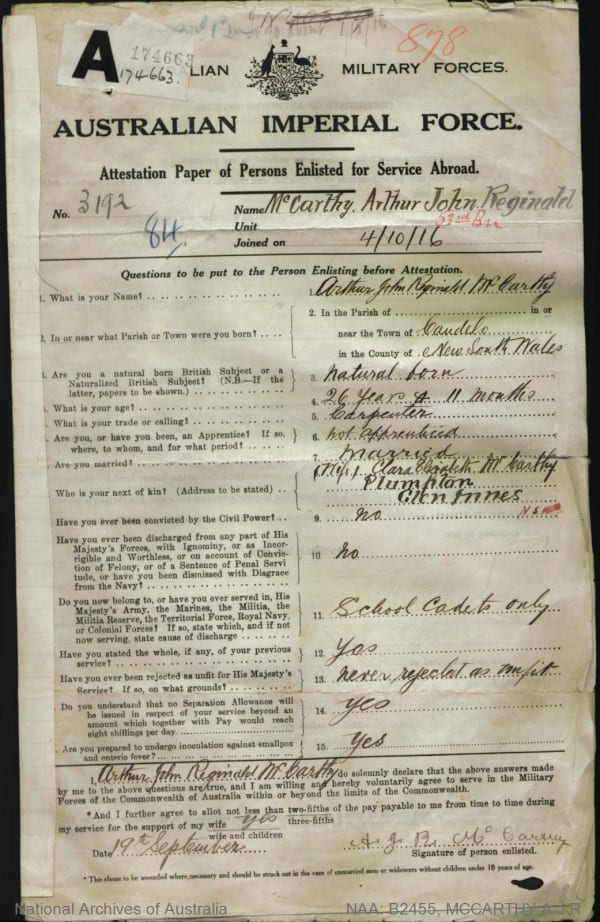 878
174663
A 174663.
LIAN MILITARY FORCES.
AUSTRALIAN IMPERIAL FORCE.
Attestation Paper of Persons Enlisted for Service Abroad.
No. 3192
84
Name McCarthy. Arthur John Reginald
Unit 53rd Bn
Joined on 4/10/16
Questions to be put to the Person Enlisting before Attestation.
1. What is your Name? Arthur John Reginald McCarthy
2. In or near what Parish or Town were you born?
2. In the Parish of in or
near the Town of Candelo
in the County of New South Wales
3. Are you a natural born British Subject or a
Naturalized British Subject? (N.B.—If the
latter, papers to be shown.)
3. natural born
What is your age? 4. 26 Years 11 months
What is your trade or calling? 5. Carpenter
Are you, or have you been, an Apprentice? If so,
where, to whom, and for what period?
6. not apprenticed
Are you married? 7. Married
Who is your next of kin? (Address to be stated)
(Mrs) Clara Elizabeth McCarthy
Plumpton
Glen Innes
N S W
Have you ever been convicted by the Civil Power? 9. no
Have you ever been discharged from any part of His
Majesty's Forces, with Ignominy, or as Incor-
rigible and Worthless, or on account of Convic-
tion of Felony, or of a Sentence of Penal Servi
tude, or have you been dismissed with Disgrace
from the Navy?
10. no
Do you now belong to, or have you ever served in, His
Majesty's Army, the Marines, the Militia, the
Militia Reserve, the Territorial Force, Royal Navy,
or Colonial Forces? If so, state which, and if not
now serving, state cause of discharge
11. School Cadets only
Have you stated the whole, if any, of your previous
service?
12. Yas
Have you ever been rejected as unfit for His Majesty's
Service? If so, on what grounds?
13. never rejectet as unfit
Do you understand that no Separation Allowance will
be issued in respect of your service beyond an
amount which together with Pay would reach
eight shillings per day.
14. Yes
Are you prepared to undergo inoculation against smallpox
and enteric fever?
15. Yes
I, Arthur John Reginald McCarthy do solemnly declare that the above answers made
by me to the above questions are true, and I am willing and hereby voluntarily agree to serve in the Military
Forces of the Commonwealth of Australia within or beyond the limits of the Commonwealth.
*And I further agree to allot not less than two-fifths of the pay payable to me from time to time during
three-fifths
my service for the support of my wife yes
wife and children
Date 19th September
A. J. R. McCarthy
Signature of person enlisted.
* This clause to be amended where necessary and should be struck out in the case of unmarried men or widowers without children under 18 years of age.
National Archives of Australia NAA: B2455, MCCARTHY A J R